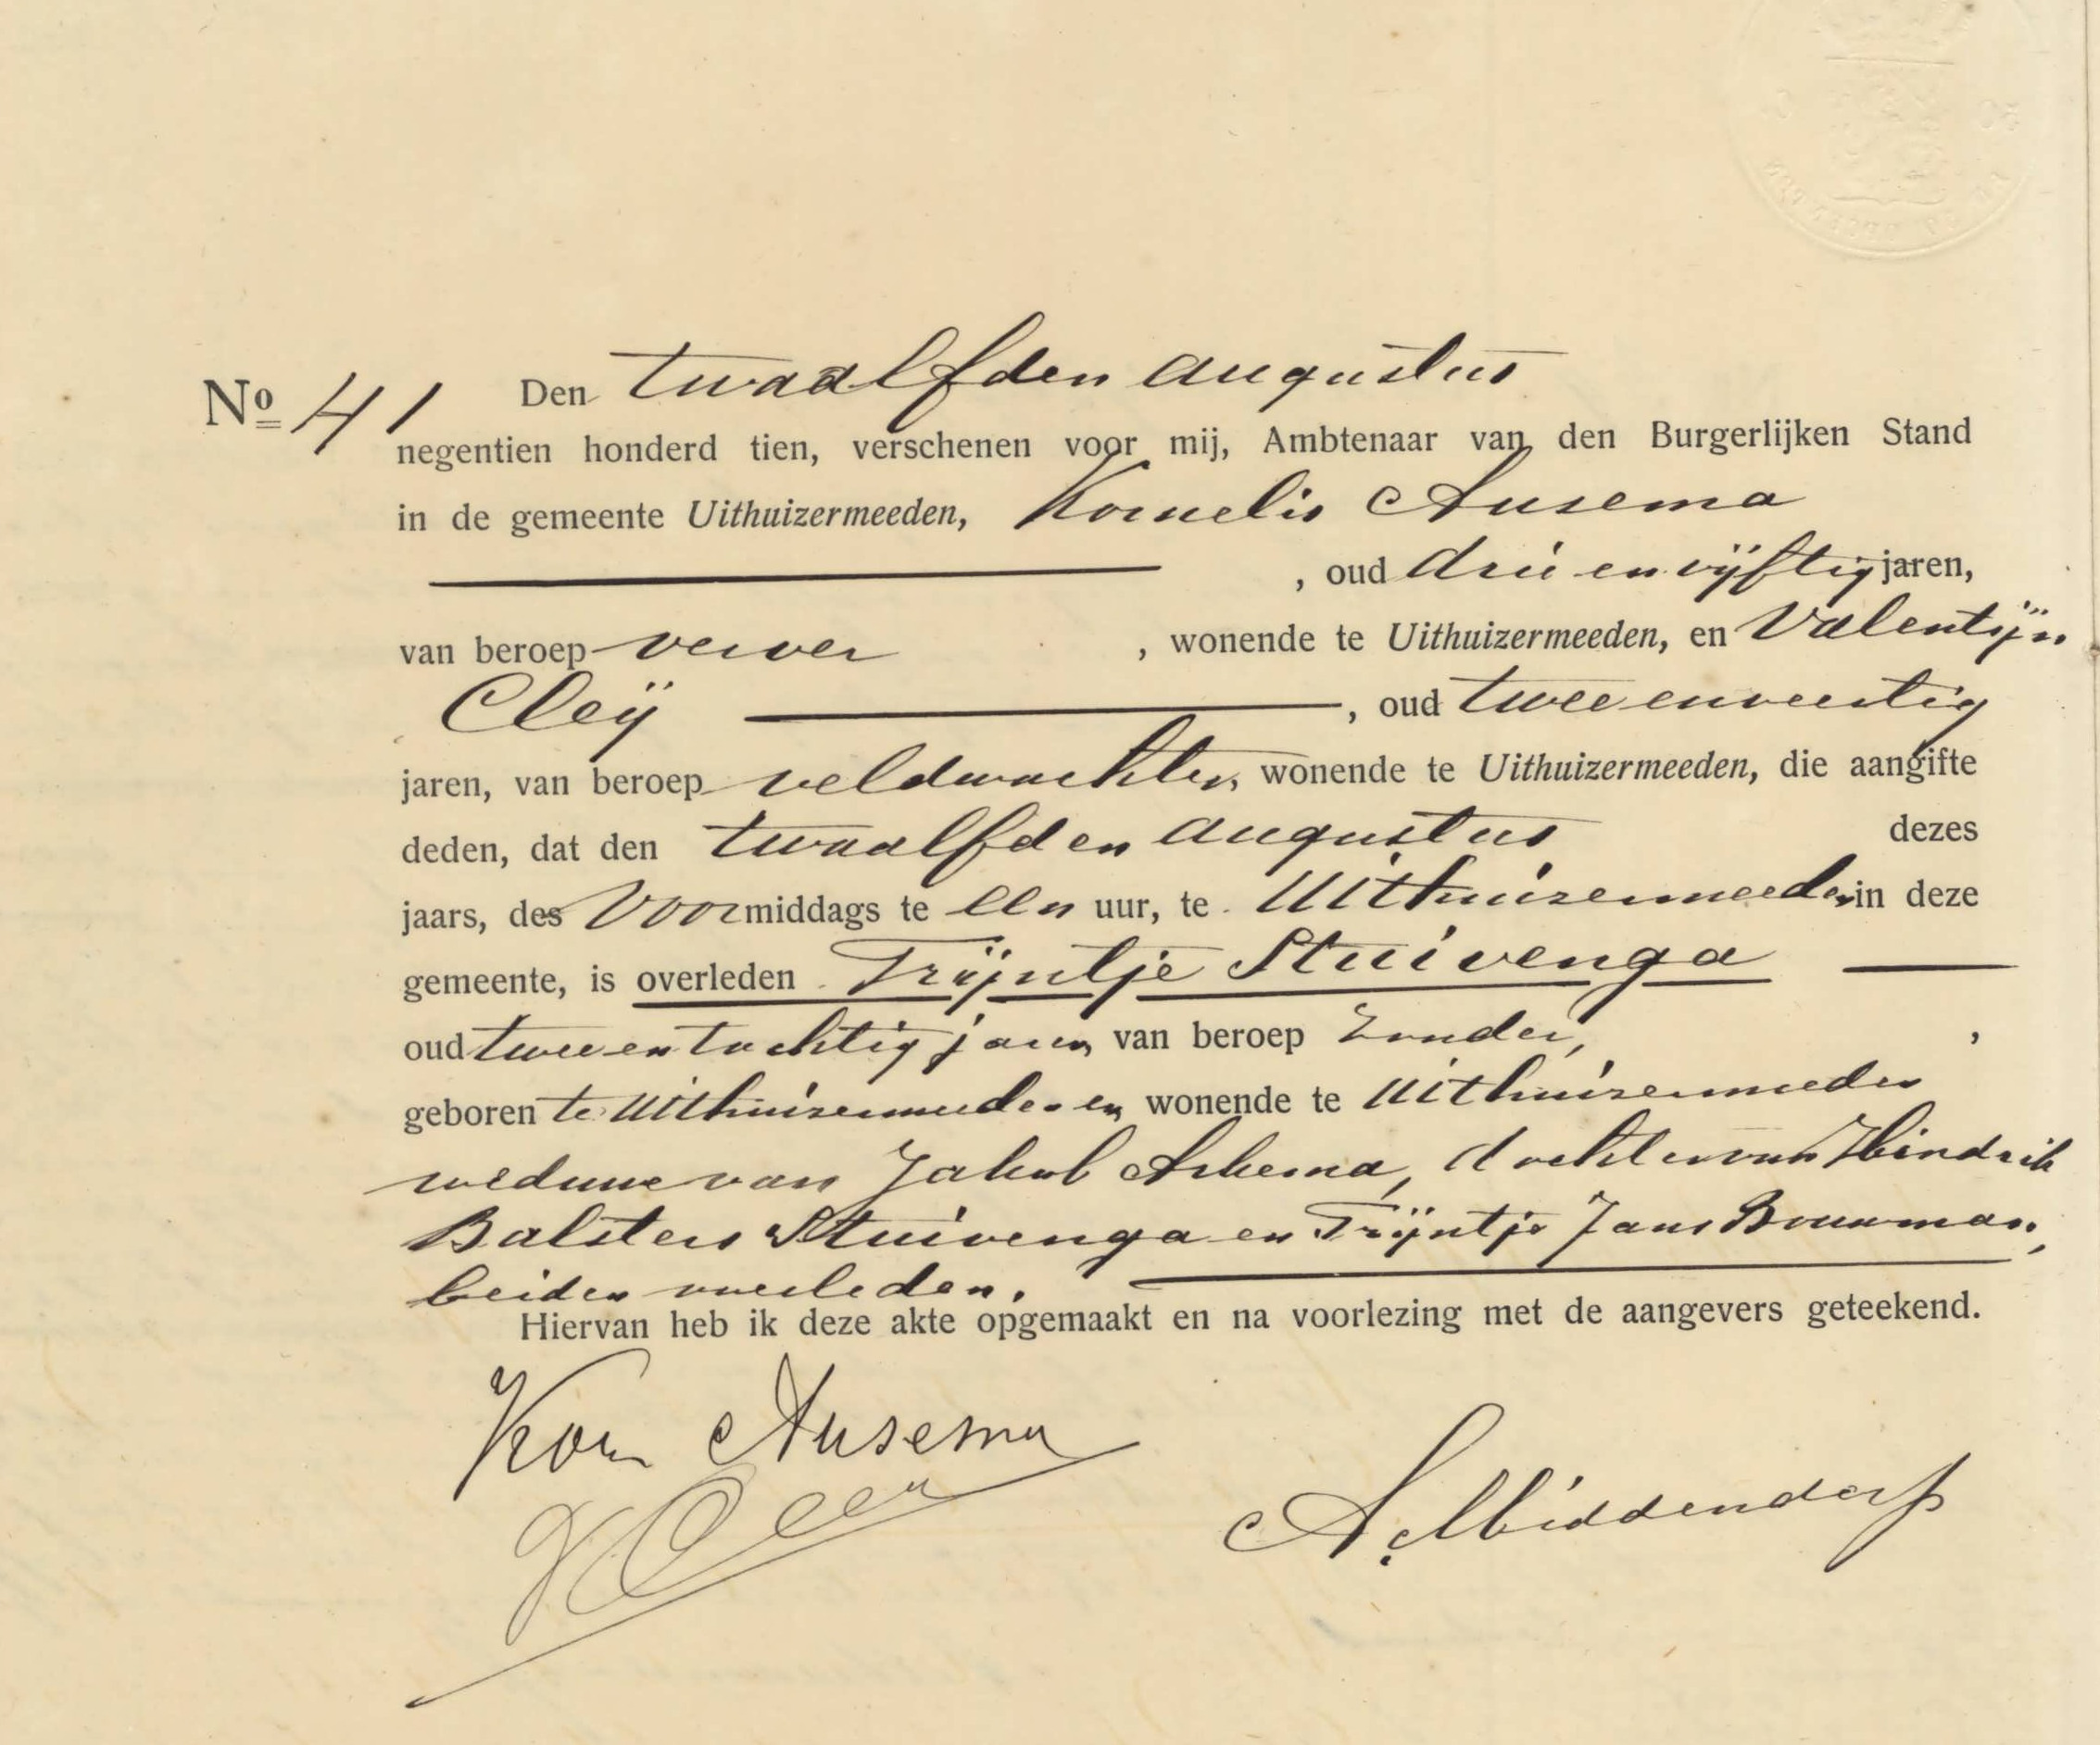 No 41 Den twaalfden augustus
negentien honderd tien, verschenen voor mij, Ambtenaar van den Burgerlijken Stand
in de gemeente Uithuizermeeden, Kornelis Ausema
, oud drie en vijftig jaren,
van beroep verver , wonende te Uithuizermeeden, en Valentijn
Cleij , oud twee en veertig
jaren, van beroep veldwachter, wonende te Uithuizermeeden, die aangifte
deden, dat den twaalfden augustus dezes
jaars, des voormiddags te een uur, te Uithuizermeeden in deze
gemeente, is overleden Trijntje Stuivenga
oud twee en tachtig jaren, van beroep zonder, ,
geboren te Uithuizermeeden en wonende te Uithuizermeeden
weduwe van Jakob Arkema, dochter van Hindrik
Balsters Stuivenga en Trijntje Jans Bouwman,
beiden overleden.
Hiervan heb ik deze akte opgemaakt en na voorlezing met de aangevers geteekend.
Kor Ausema
A. Middendorp